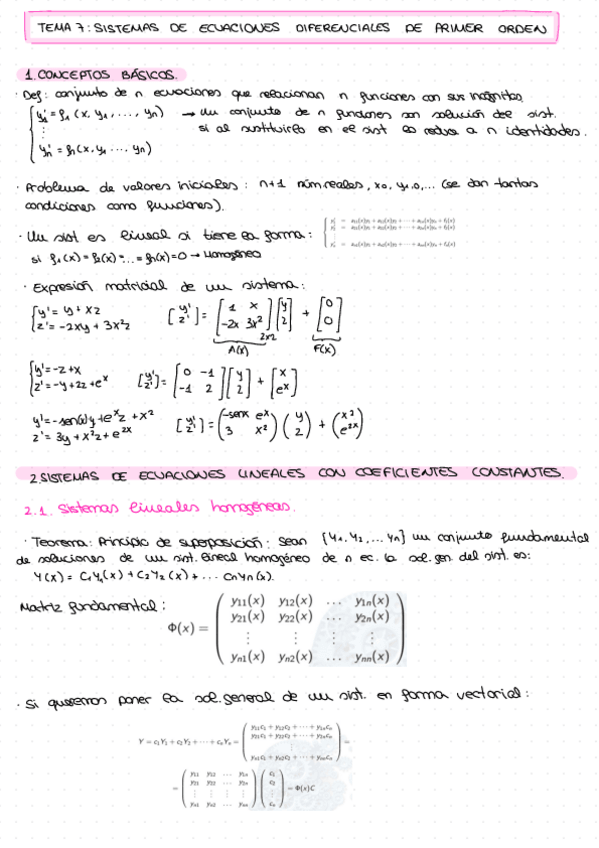 TEMA 7: SISTEMAS DE ECUACIONES DIFERENCIALES DE PRIMER ORDEN
1. CONCEPTOS BÁSICOS.
· Def: conjunto de n ecuaciones que relacionan n funciones con sus incógnitas.
{ y₁' = f₁(x, y₁, ..., yn) → Un conjunto de n funciones son solución del sist.
⋮ si al sustituirlo en el sist lo reduce a n identidades.
yn' = fn(x, y₁ ..., yn)
· Problema de valores iniciales: n+1 núm reales, x₀, y₁.₀, ... (se dan tantas
condiciones como funciones).
· Un sist es lineal si tiene la forma: { y₁' = a₁₁(x)y₁ + a₁₂(x)y₂ + ··· + a₁ₙ(x)yₙ + f₁(x)
y₂' = a₂₁(x)y₁ + a₂₂(x)y₂ + ··· + a₂ₙ(x)yₙ + f₂(x)
yₙ' = aₙ₁(x)y₁ + aₙ₂(x)y₂ + ··· + aₙₙ(x)yₙ + fₙ(x)
si f₁(x) = f₂(x) = ... = fn(x) = 0 → Homogéneo
· Expresión matricial de un sistema:
{ y' = y + xz [y' = [1 x [y + [0
z' = -2xy + 3x²z z'] -2x 3x²] z] 0]
2x2
A(x) F(x)
{ y' = -z + x [y' = [0 -1 [y + [x
z' = -y + 2z + eˣ z'] -1 2] z] eˣ]
y' = -sen(x)y + eˣz + x² [y' = (-senx eˣ (y + (x²
z' = 3y + x²z + e²ˣ z'] 3 x²) z) e²ˣ)
2. SISTEMAS DE ECUACIONES LINEALES CON COEFICIENTES CONSTANTES.
2.1. Sistemas lineales homogéneas.
· Teorema: Principio de superposición: Sean {Y₁, Y₂, ... Yn} un conjunto fundamental
de soluciones de un sist. lineal homogéneo de n ec. la sol. gen. del sist. es:
Y(x) = C₁Y₁(x) + C₂Y₂(x) + ... CnYn(x).
Matriz fundamental:
Φ(x) = ( y₁₁(x) y₁₂(x) ... y₁ₙ(x)
y₂₁(x) y₂₂(x) ... y₂ₙ(x)
⋮ ⋮ ⋮ ⋮
yₙ₁(x) yₙ₂(x) ... yₙₙ(x) )
· Si queremos poner la sol. general de un sist. en forma vectorial:
Y = c₁Y₁ + c₂Y₂ + ··· + cₙYₙ = ( y₁₁c₁ + y₁₂c₂ + ··· + y₁ₙcₙ
y₂₁c₁ + y₂₂c₂ + ··· + y₂ₙcₙ
⋮
yₙ₁c₁ + yₙ₂c₂ + ··· + yₙₙcₙ ) =
= ( y₁₁ y₁₂ ... y₁ₙ ) ( c₁ )
( y₂₁ y₂₂ ... y₂ₙ ) ( c₂ )
( ⋮ ⋮ ⋮ ⋮ ) ( ⋮ ) = Φ(x)C
( yₙ₁ yₙ₂ ... yₙₙ ) ( cₙ )